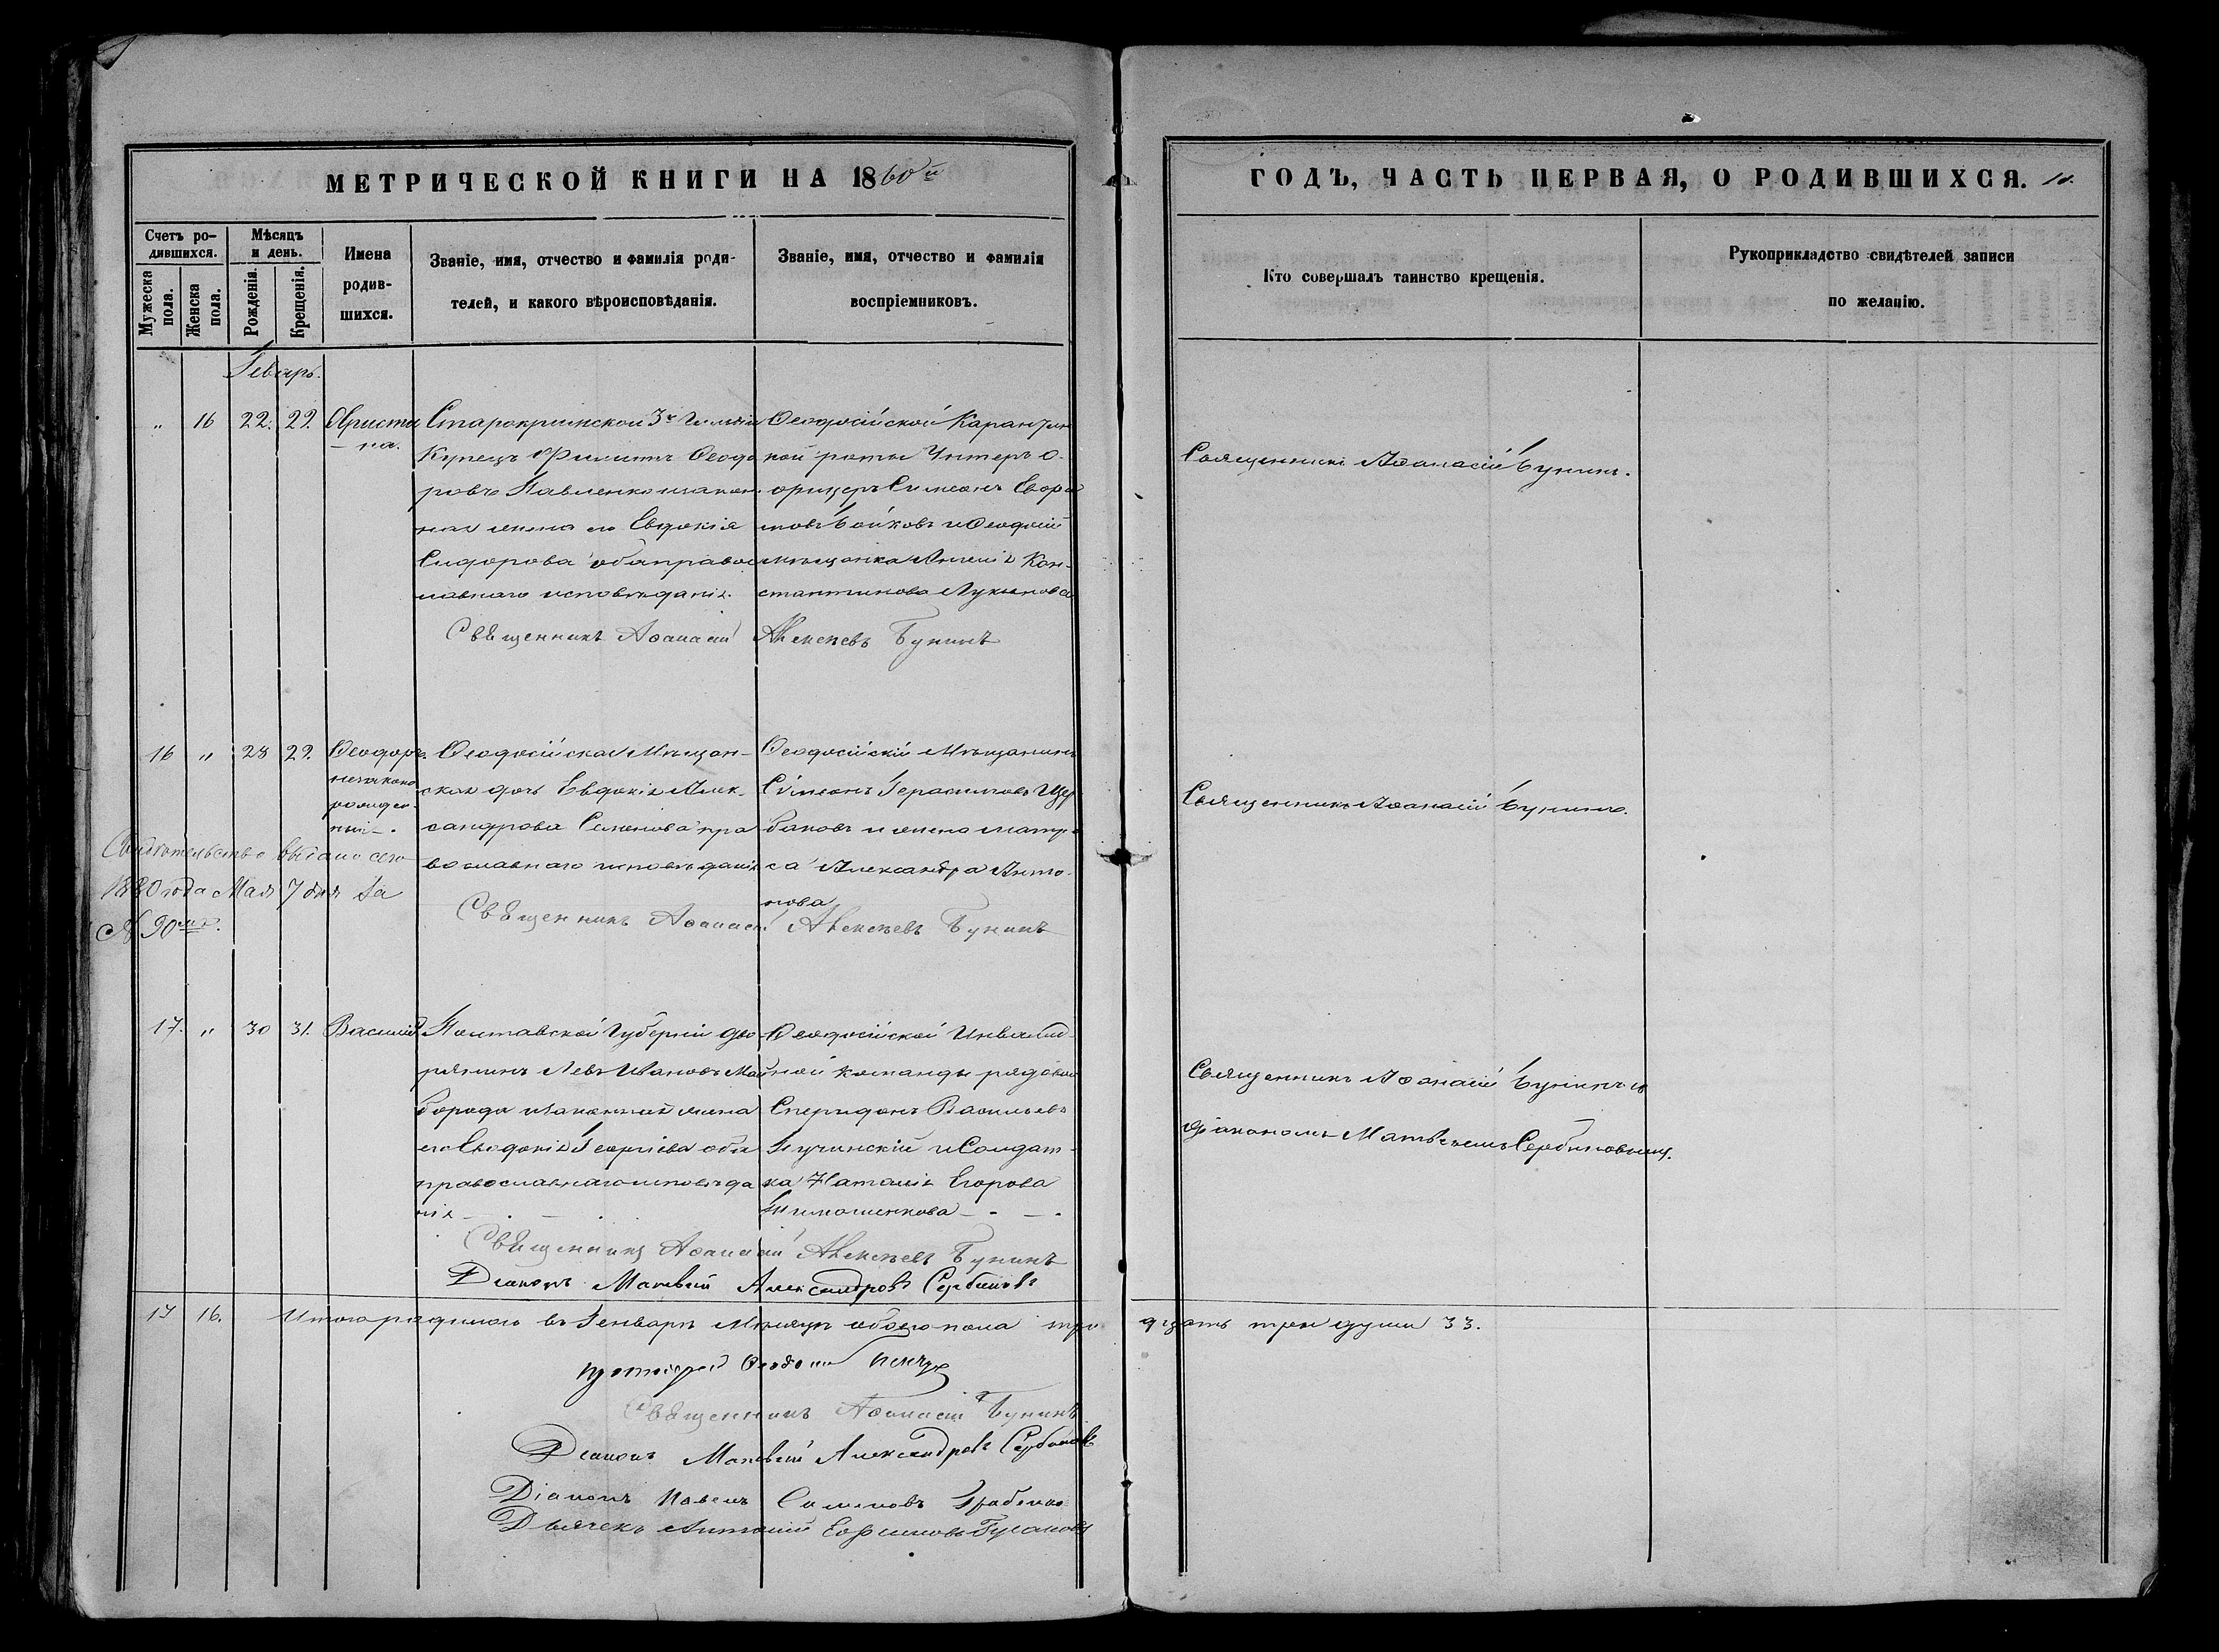 МЕТРИЧЕСКОЙ КНИГИ НА 1860й
ГОДЪ, ЧАСТЬ ПЕРВАЯ, О РОДИВШИХСЯ.
Счетъ ро-
дившихся.
Мужеска пола.
Женска пола.
Мѣсяцъ и день.
Рожденія.
Крещенія.
Имена
родив-
шихся.
Званіе, имя, отчество и фамилія роди-
телей, и какого вѣроисповѣданія.
Званіе, имя, отчество и фамилія
воспріемниковъ.
Кто совершалъ таинство крещенія.
Рукоприкладство свидѣтелей записи
по желанію.
Генварь.
" 16 22. 29. Христи
на.
Старокримской 3й Гильдіи
Купецъ Филиппъ Феодо
ровъ Павленко и закон
ная жена его Евдокія
Сидорова оба право
славнаго исповѣданія.
Феодосійской Карантин
ной роты Унтеръ о-
фицеръ Симеонъ
Бойковъ и Феодосій
мѣщанка Кон-
стантинова
Священникъ Афанасій Бунинъ.
Священникъ Афанасій Алексѣевъ Бунинъ
16 " 28 29. Феодоръ
незаконо
рожден-
ный.
Феодосійская Мѣщан-
ская дочь Евдокія Алек-
сандрова Семенова пра
вославнаго исповѣданія
Феодосійскій Мѣщанинъ
Симеонъ Герасимовъ Щер
баковъ и жена матро
са Александра Анто-
нова
Священникъ Афанасій Бунинъ.
Свидѣтельство выдано сего
1880 года Мая 7 дня за
№ 90
Священникъ Афанасій Алексѣевъ Бунинъ
17. " 30 31. Василій
Полтавской Губерніи дво
рянинъ Левъ Ивановъ Май
борода и законная жена
его Евдокія Георгіева оба
православнаго исповѣда
нія
Феодосійской Инвалид-
ной команды рядовой
Сперидонъ Васильевъ
и Солдат-
ка Наталія Егорова
Тимошенкова
Священникъ Афанасій Бунинъ съ
діакономъ Матвѣемъ Сербиновымъ.
Священникъ Афанасій Алексѣевъ Бунинъ
Діаконъ Матвѣй Александровъ Сербиновъ
17 16. Итого родилось въ Генварѣ Мѣсяцѣ обоего пола три дцать три души 33.
протоіерей
Священникъ Афанасій Бунинъ
Діаконъ Матвѣй Александровъ Сербиновъ
Діаконъ Павелъ Сименовъ
Дьячекъ Антоній Ефимовъ